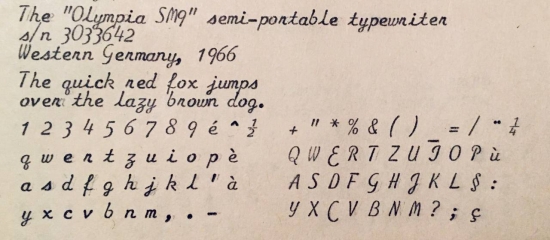 The "Olympia SM9" semi-portable typewriter
s/n 3033642
Western Germany, 1966
The quick red fox jumps
over the lazy brown dog.
1 2 3 4 5 6 7 8 9 é ^ ½ + " * % & ( ) _ = / ¨ ¼
q w e r t z u i o p è Q W E R T Z U I O P ù
a s d f g h j k l ' à A S D F G H J K L $ :
y x c v b n m , . - Y X C V B N M ? ; ç